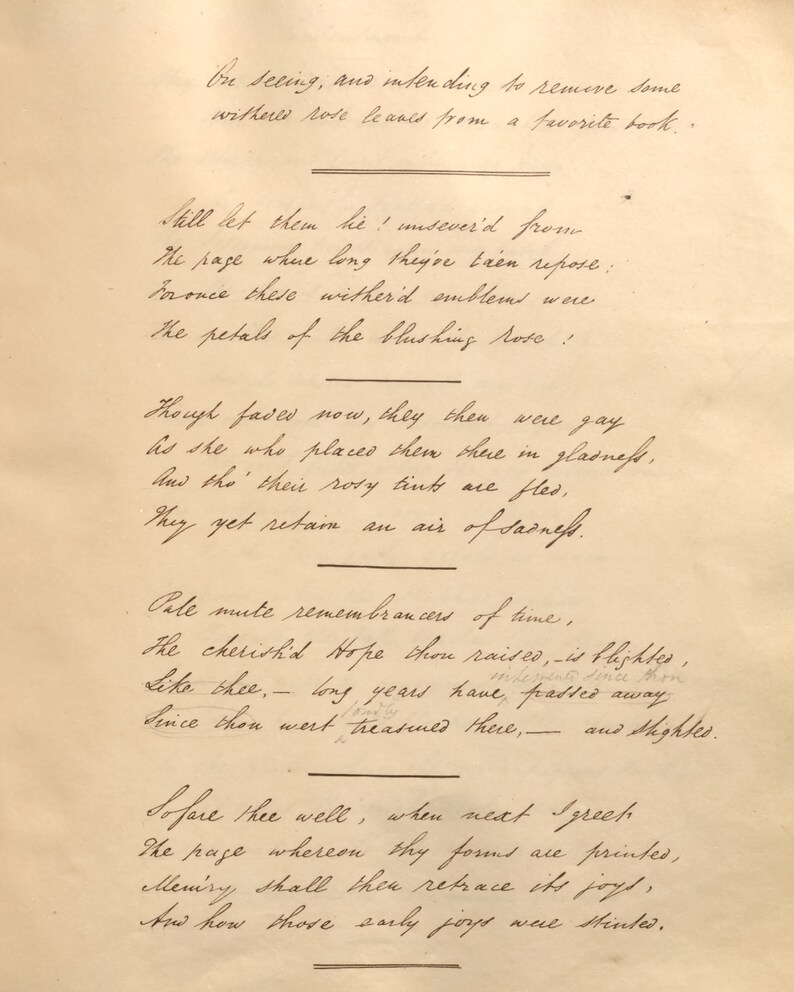 On seeing, and intending to remove some
withered rose leaves from a favorite book.
Still let them lie! unsever'd from
The page where long they've ta'en repose;
For once these wither'd emblems were
The petals of the blushing rose!
Though faded now, they then were gay
As she who placed them there in gladness,
And tho' their rosy tints are fled,
They yet retain an air of sadness.
Pale mute remembrancers of time,
The cherish'd Hope thou raised, - is blighted,
since thou
Like thee, — long years have passed away
fondly
Since thou wert treasured there, — and slighted.
So fare thee well, when next I greet
The page whereon thy forms are printed,
Mem'ry shall then retrace its joys,
And how those early joys were stinted.